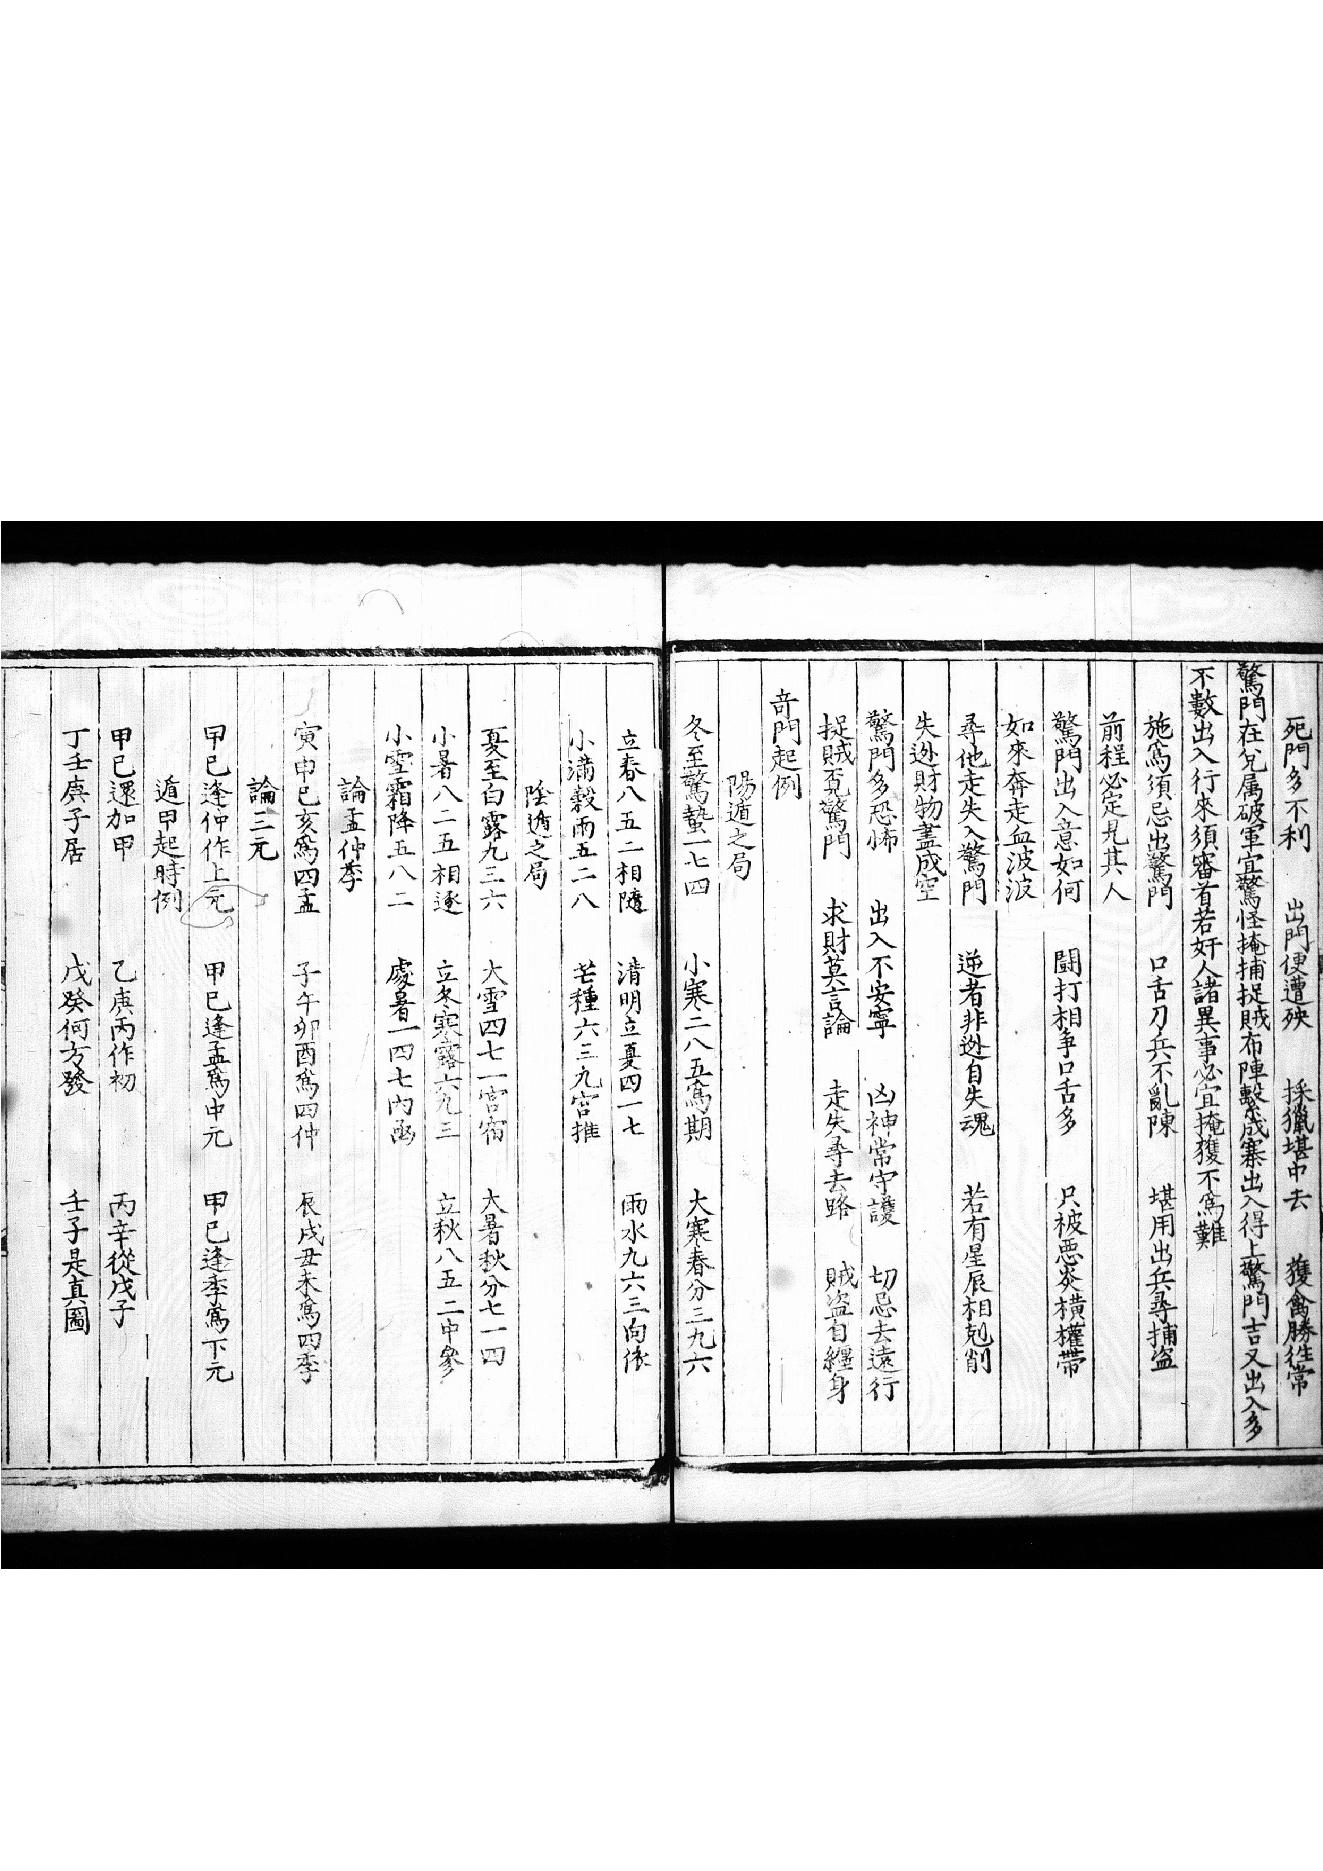 死門多不利　出門便遭殃　採獵堪中去　獲禽勝往常
驚門在兌属破軍宜驚怪掩捕捉賊布陣擊成寨出入得上驚門吉又出入多
不數出入行來須審首若奸人諸異事必宜掩獲不爲難
施爲須忌出驚門　口舌刀兵不亂陳　堪用出兵尋捕盜
前程必定見其人
驚門出入意如何　鬪打相爭口舌多　只被悪炎橫權帶
如來奔走血波波
尋他走失入驚門　逆者非逊自失魂　若有星辰相剋削
失逊財物盖成空
驚門多恐怖　出入不安寧　凶神常守護　切忌去遠行
捉賊覓驚門　求財莫言論　走失尋去路　賊盜自纏身
竒門起例
陽遁之局
冬至驚蟄一七四　小寒二八五爲期　大寒春分三九六
立春八五二相隨　清明立夏四一七　雨水九六三向依
小滿穀雨五二八　芒種六三九宮推
陰遁之局
夏至白露九三六　大雪四七一宮宿　大暑秋分七一四
小暑八二五相逐　立冬寒露六九三　立秋八五二中參
小雪霜降五八二　處暑一四七內函
論孟仲季
寅申巳亥爲四孟　子午卯酉爲四仲　辰戌丑未爲四季
論三元
甲巳逢仲作上元　甲巳逢孟爲中元　甲巳逢季爲下元
遁甲起時例
甲巳還加甲　乙庚丙作初　丙辛從戊子
丁壬庚子居　戊癸何方發　壬子是真圖